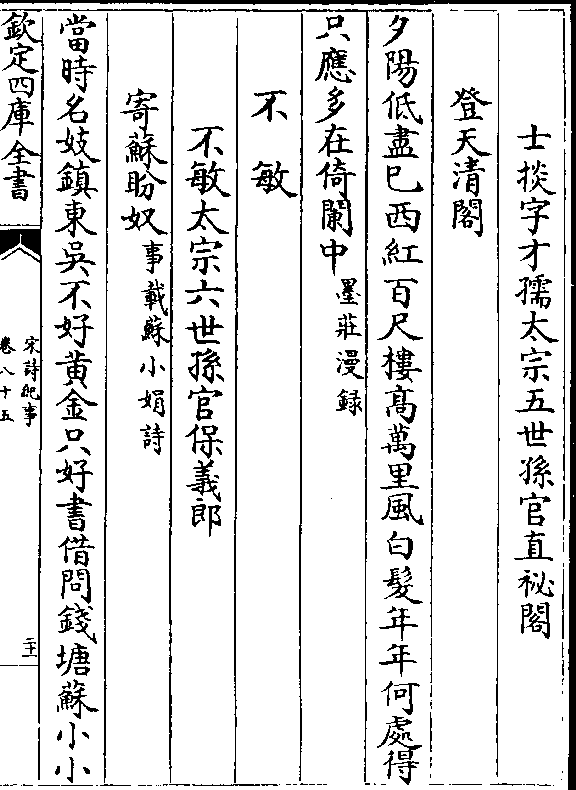 士掞字才孺太宗五世孫官直祕閣
登天清閣
夕陽低盡已西紅百尺樓髙萬里風白髮年年何處得
只應多在倚闌中墨莊漫録
不敏
不敏太宗六世孫官保義郎
寄蘇盼奴事載蘇小娟詩
當時名妓鎮東吳不好黄金只好書借問錢塘蘇小小
欽定四庫全書
宋詩紀事
卷八十五
二十